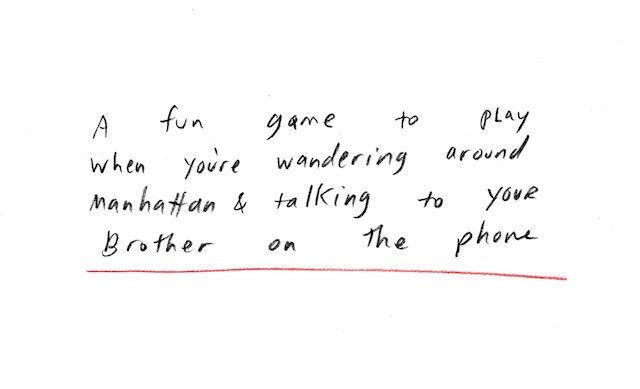 A fun game to play
when you're wandering around
Manhattan & talking to your
Brother on the phone